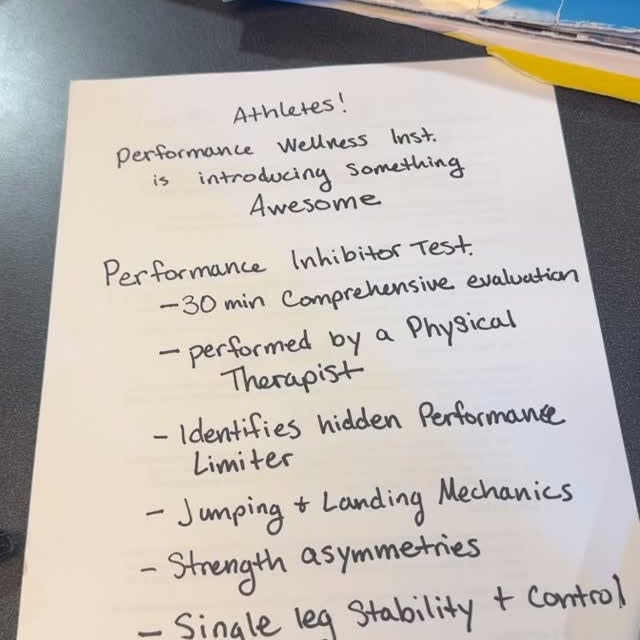 Athletes!
Performance Wellness Inst.
is introducing something
Awesome
Performance Inhibitor Test.
- 30 min Comprehensive evaluation
- performed by a Physical
Therapist
- Identifies hidden Performance
Limiter
- Jumping + Landing Mechanics
- Strength asymmetries
- Single leg Stability + Control